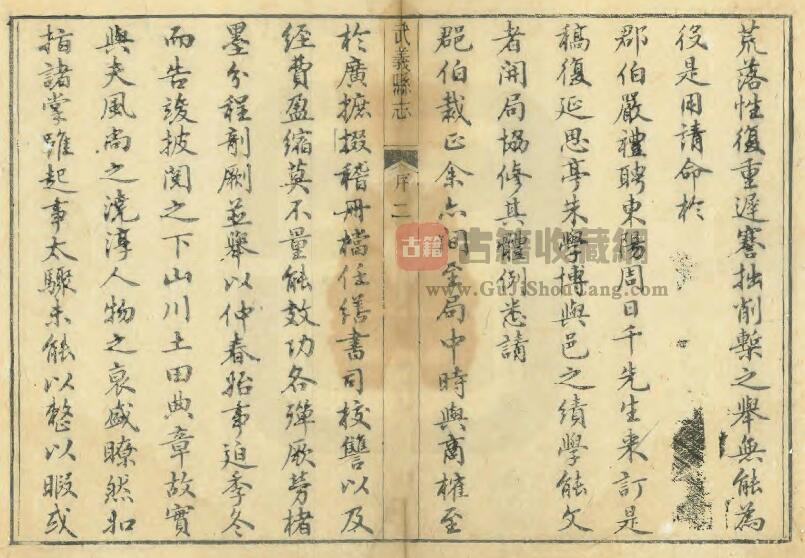 荒落性復重遲蹇拙削槧之舉無能為
役是用請命於
郡伯嚴禮聘東陽周日千先生來訂是
稿復延思亭朱學博與邑之績學能文
者開局協修其體例悉請
郡伯裁正余亦間至局中時與商榷至
武義縣志
序
二
於廣摭掇稽冊檔任繕書司挍讐以及
經費盈縮莫不量能效功各殫厥勞楮
墨分程剞劂並舉以仲春始事迨季冬
而告竣披閱之下山川土田典章故實
與夫風尚之澆淳人物之衰盛瞭然如
指諸掌雖起事太驟未能以整以暇或
古籍
古籍收藏網
www.GuJiShouCang.com